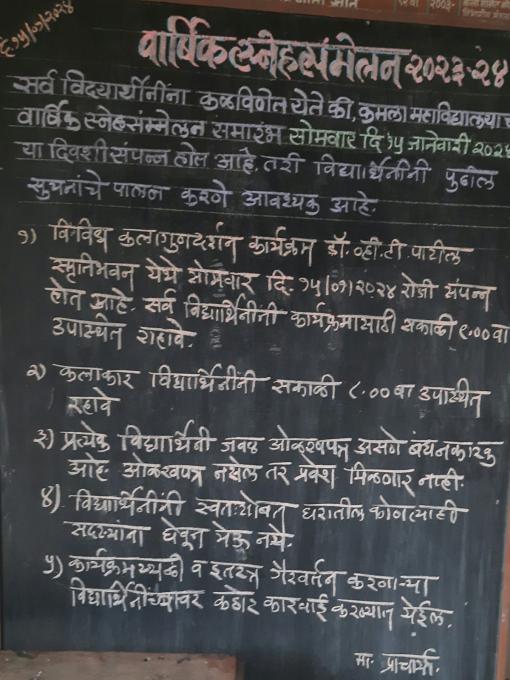 दि १५/०१/२०२४
वार्षिक स्नेहसंमेलन २०२३-२४
सर्व विद्यार्थीनींना कळविणेत येते की, कमला महाविद्यालयाचा
वार्षिक स्नेहसंम्मेलन समारंभ सोमवार दि १५ जानेवारी २०२४
या दिवशी संपन्न होत आहे. तरी विद्यार्थिनींनी पुढील
सुचनांचे पालन करणे आवश्यक आहे.
१) विविध कलागुणदर्शन कार्यक्रम डॉ. व्ही. टी. पाटील
स्मृतिभवन येथे सोमवार दि. १५/०१/२०२४ रोजी संपन्न
होत आहे. सर्व विद्यार्थिनींनी कार्यक्रमासाठी सकाळी ९.०० वा
उपास्थित राहावे.
२) कलाकार विद्यार्थिनींनी सकाळी ८.०० वा उपास्थित
रहावे
३) प्रत्येक विद्यार्थिनी जवळ ओळखपत्र असणे बंधनकारक
आहे. ओळखपत्र नसेल तर प्रवेश मिळणार नाही.
४) विद्यार्थिनींनी स्वतःसोबत घरातील कोणत्याही
सदस्यांना घेवून येऊ नये.
५) कार्यक्रमस्थळी व इतरत्र गैरवर्तन करणाऱ्या
विद्यार्थिनींच्यावर कठोर कारवाई करण्यात येईल.
मा. प्राचार्या.